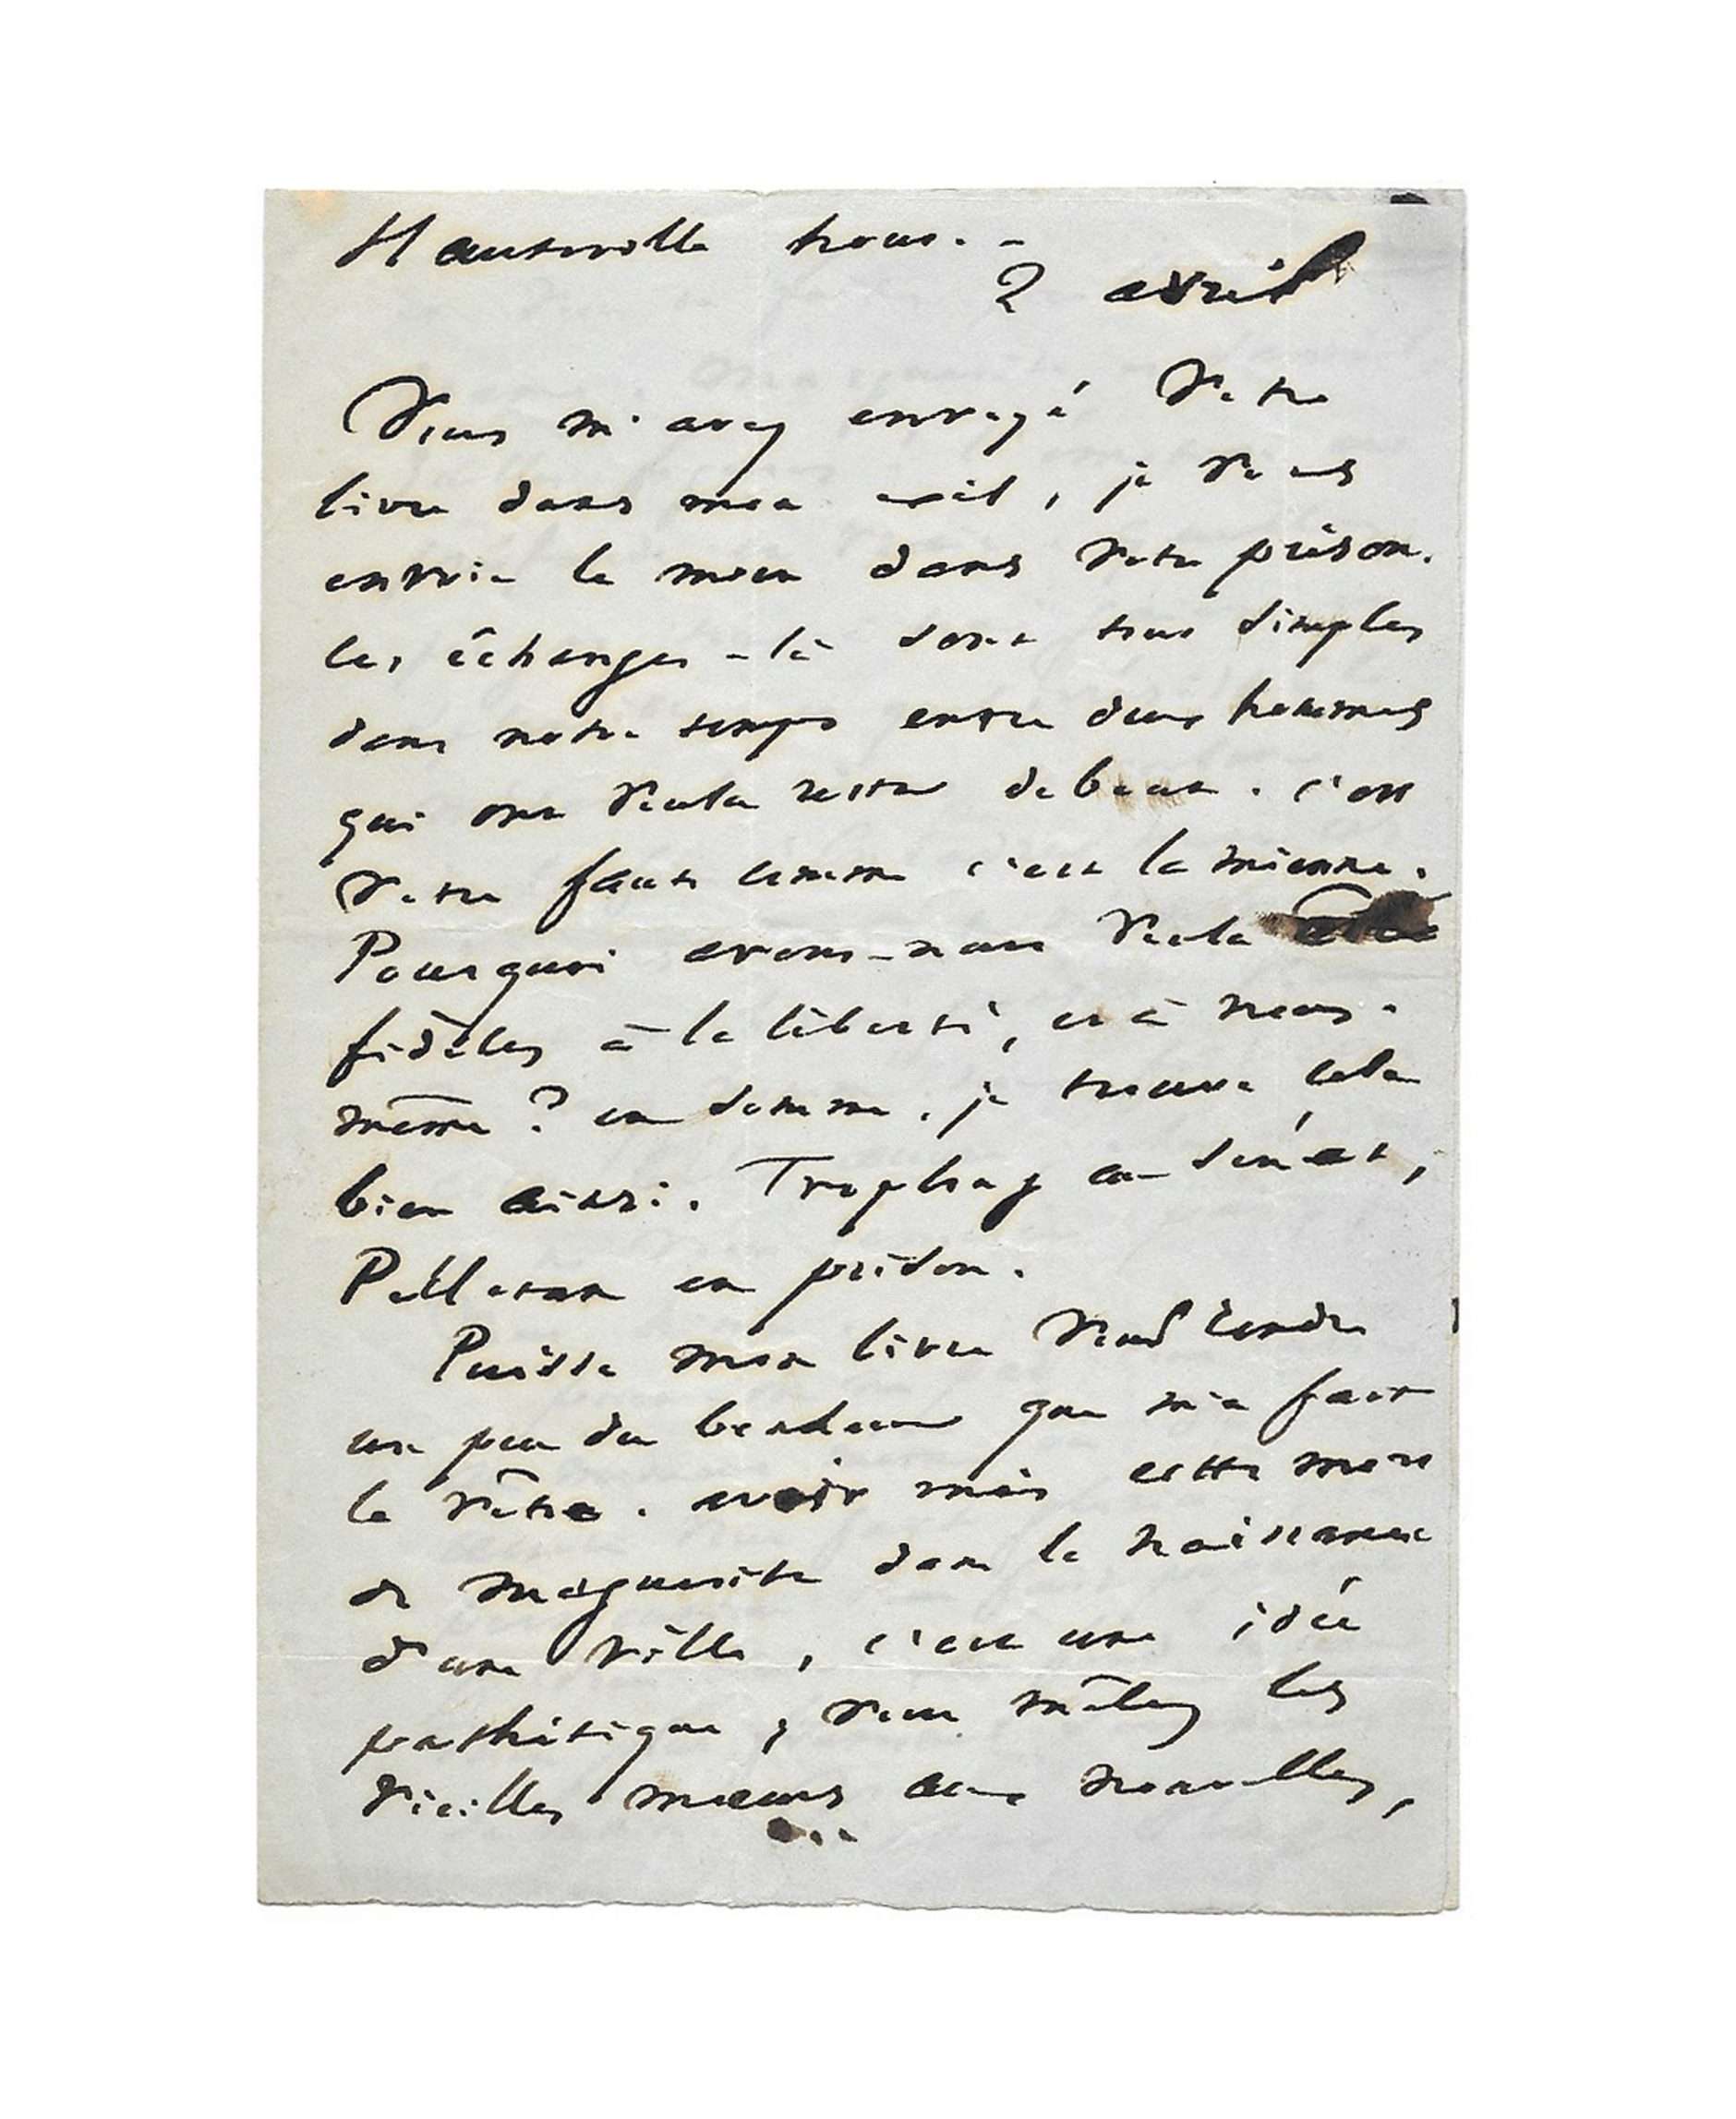 Hauteville house. –
2 avril
Vous m'avez envoyé votre
livre dans mon exil, je vous
envoie le mien dans votre prison.
Ces échanges-là sont tous simples
dans notre temps entre deux hommes
qui ont voulu rester debout. c'est
votre faute comme c'est la mienne.
Pourquoi avons-nous voulu être
fidèles à la liberté, et à nous-
même ? en somme, je trouve cela
bien ainsi. Troplong au sénat,
Pelletan en prison.
Puisse mon livre vous rendre
un peu du bonheur que m'a fait
le vôtre. avoir mis cette mort
de marguerite dans la naissance
d'une ville, c'est une idée
pathétique ; vous mêlez les
vieilles mœurs aux nouvelles,